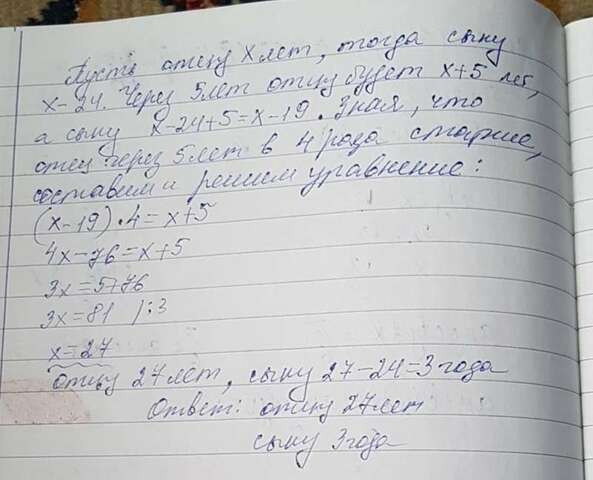 Пусть отцу x лет, тогда сыну
x-24. Через 5 лет отцу будет x+5 лет,
а сыну x-24+5=x-19. Зная, что
отец через 5 лет в 4 раза старше,
составим и решим уравнение:
(x-19)·4=x+5
4x-76=x+5
3x=5+76
3x=81 |:3
x=27
Отцу 27 лет, сыну 27-24=3 года
Ответ: отцу 27 лет
сыну 3 года